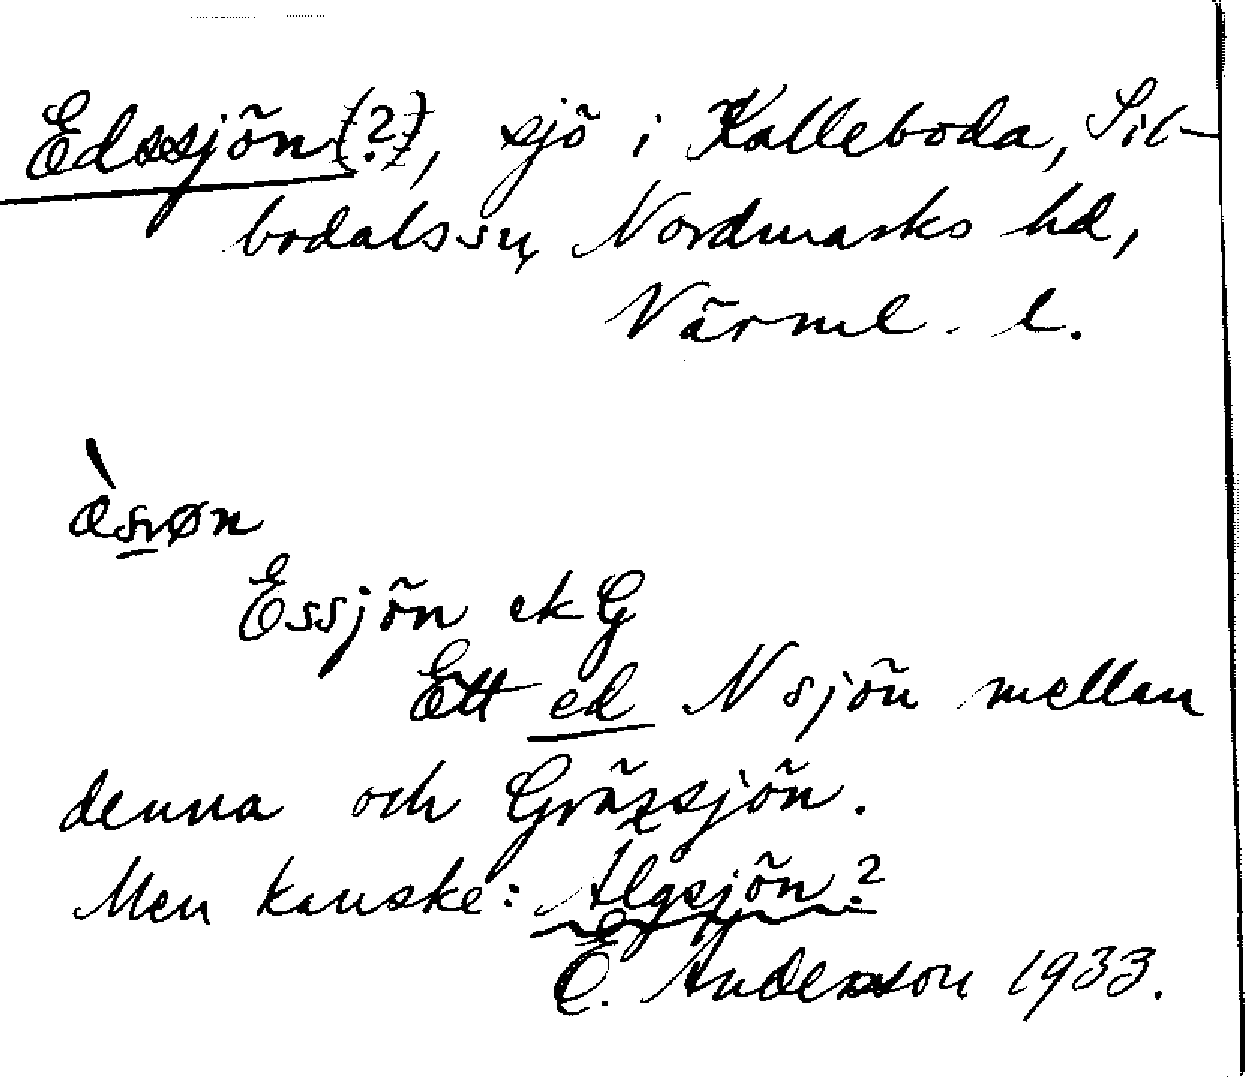 Edssjön (?), sjö i Kalleboda, Sil-
bodals sn, Nordmarks hd,
Värml. l.
Essjön ek G
Ett ed N sjön mellan
denna och Grässjön.
Men kanske: Älgsjön?
E. Anderson 1933.